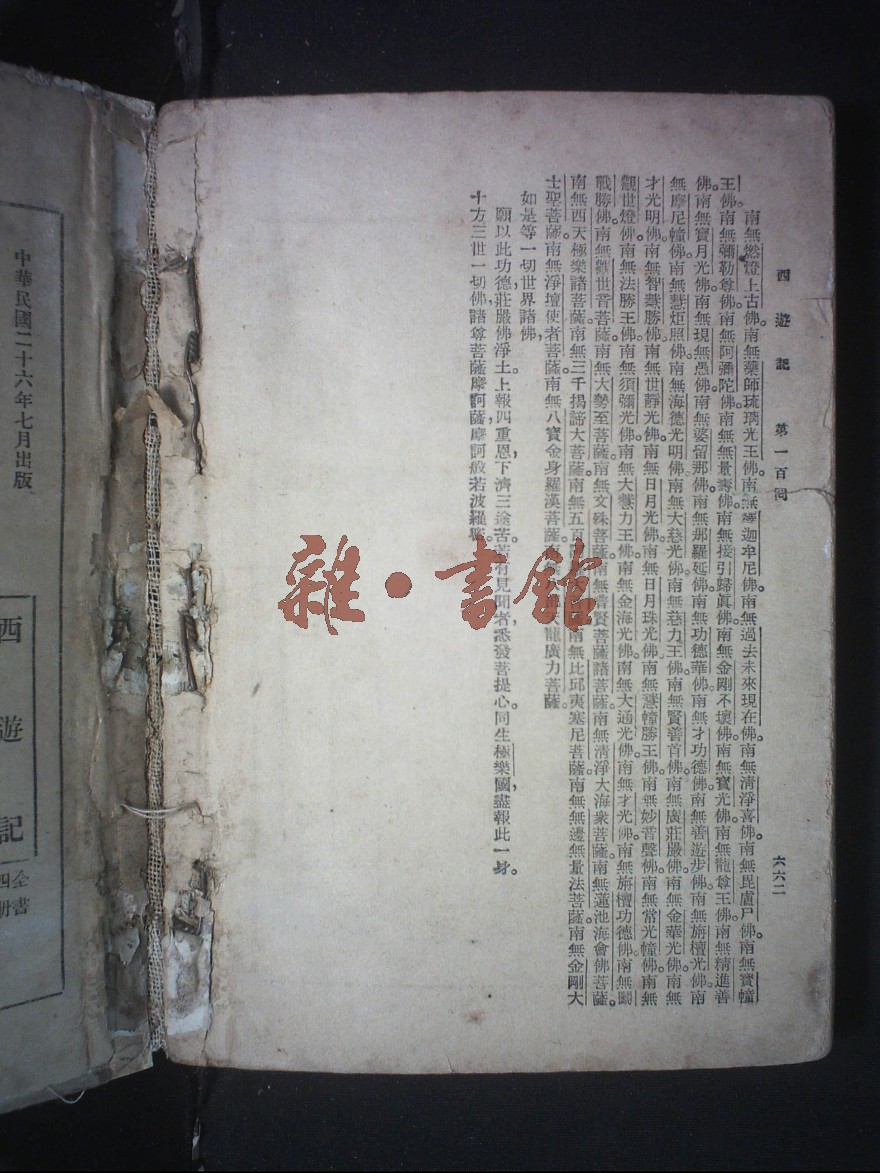 西遊記　第一百囘
六六二
南無燃燈上古佛。南無藥師琉璃光王佛。南無釋迦牟尼佛。南無過去未來現在佛。南無清淨喜佛。南無毘盧尸佛。南無寶幢
王佛。南無彌勒尊佛。南無阿彌陀佛。南無無量壽佛。南無接引歸眞佛。南無金剛不壞佛。南無寶光佛。南無龍尊王佛。南無精進善
佛。南無寶月光佛。南無現無愚佛。南無婆留那佛。南無那羅延佛。南無功德華佛。南無才功德佛。南無善遊步佛。南無旃檀光佛。南
無摩尼幢佛。南無慧炬照佛。南無海德光明佛。南無大慈光佛。南無慈力王佛。南無賢善首佛。南無廣莊嚴佛。南無金華光佛。南無
才光明佛。南無智慧勝佛。南無世靜光佛。南無日月光佛。南無日月珠光佛。南無慧幢勝王佛。南無妙音聲佛。南無常光幢佛。南無
觀世燈佛。南無法勝王佛。南無須彌光佛。南無大慧力王佛。南無金海光佛。南無大通光佛。南無才光佛。南無旃檀功德佛。南無鬭
戰勝佛。南無觀世音菩薩。南無大勢至菩薩。南無文殊菩薩。南無普賢菩薩諸菩薩。南無清淨大海衆菩薩。南無蓮池海會佛菩薩。
南無西天極樂諸菩薩。南無三千揭諦大菩薩。南無五百大菩薩。南無比邱夷塞尼菩薩。南無無邊無量法菩薩。南無金剛大
士聖菩薩。南無淨壇使者菩薩。南無八寶金身羅漢菩薩。天龍廣力菩薩。
如是等一切世界諸佛，
願以此功德，莊嚴佛淨土。上報四重恩，下濟三途苦。若有見聞者，悉發菩提心。同生極樂國，盡報此一身。
十方三世一切佛，諸尊菩薩摩訶薩，摩訶般若波羅
雜·書館
中華民國二十六年七月出版
西遊記
全書
四册